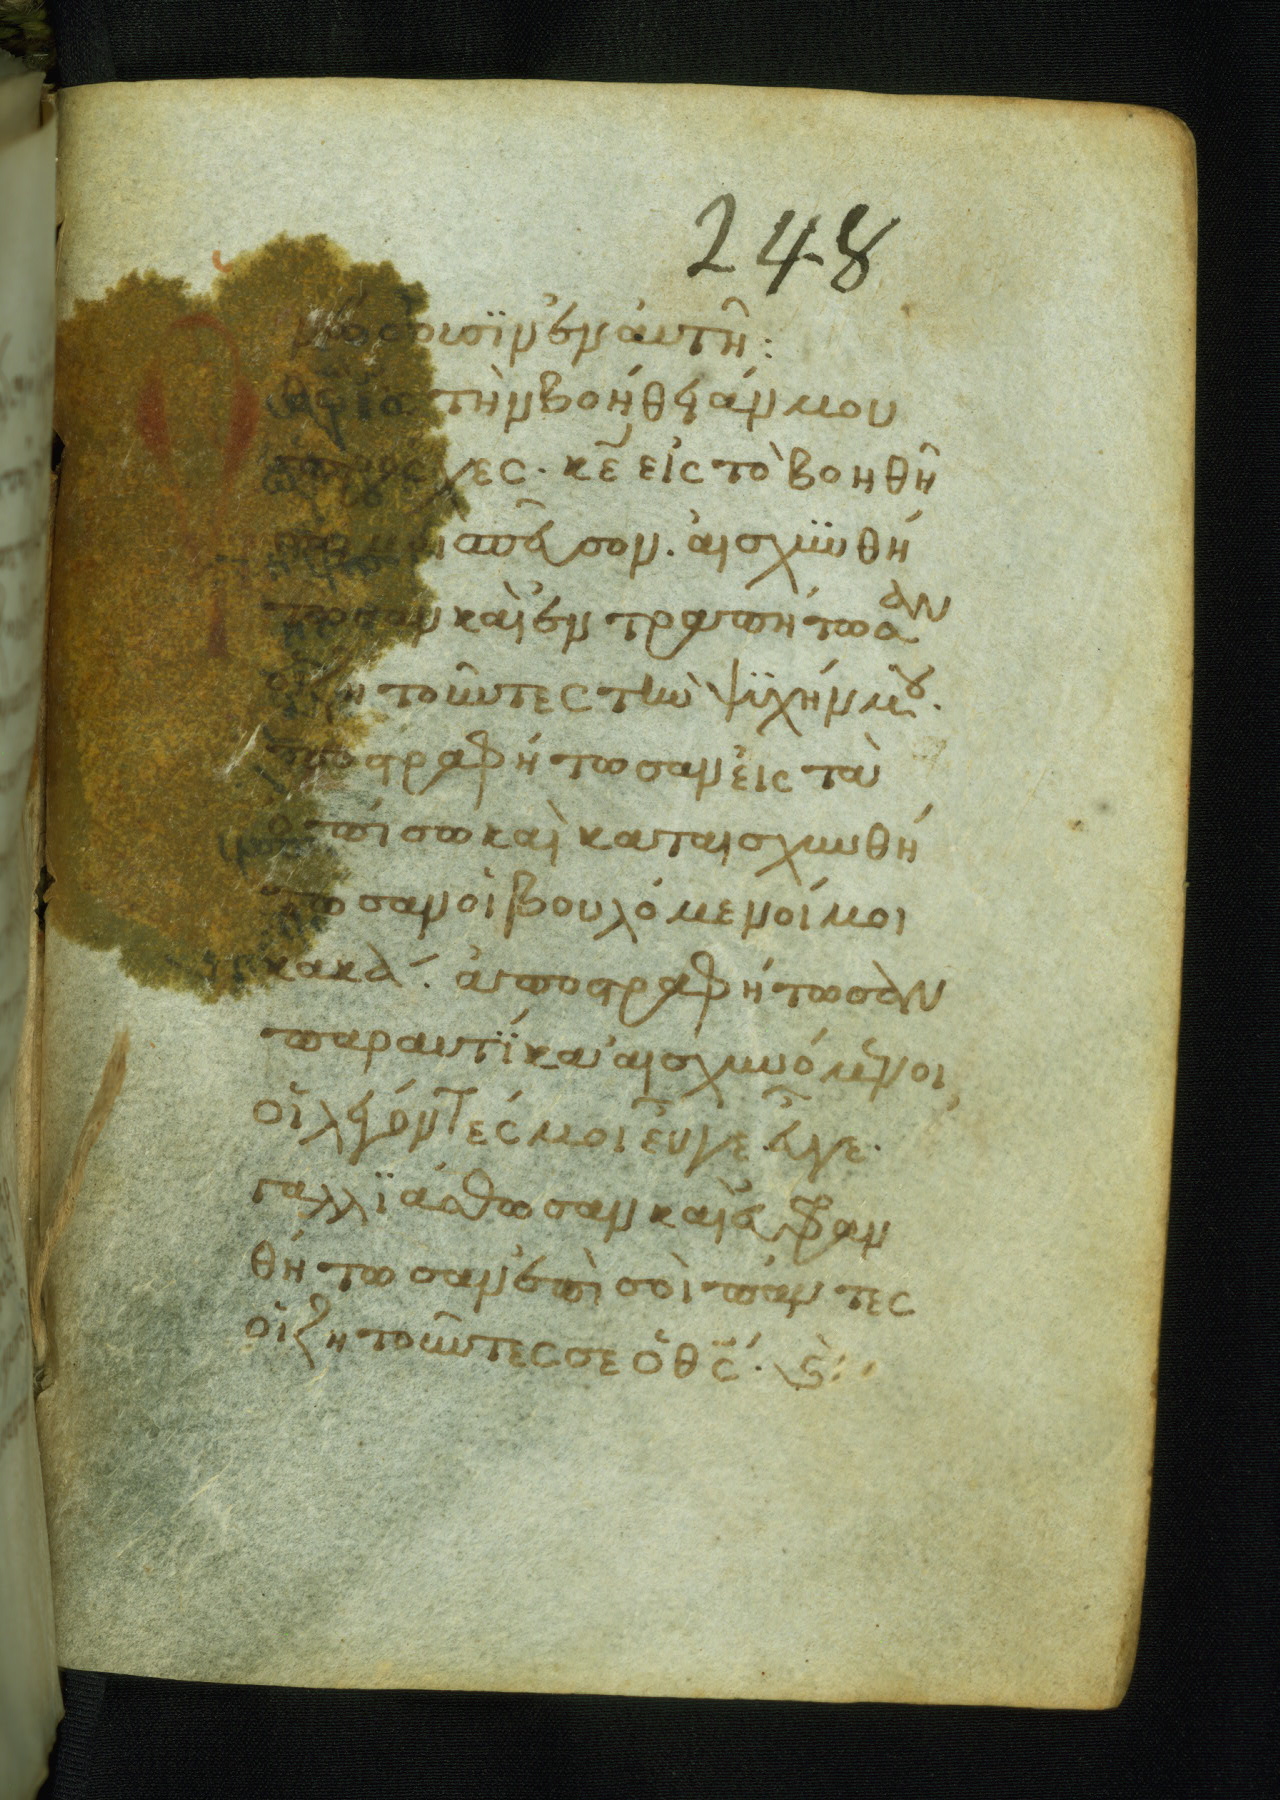 248
νοσοισϊν ἐν ἀυτῆ:
τὴν βοήθειάν μου
χες. κε̄ εἰς τὸ βοηθῆ
σπευσον. ἀισχϋνθή
τωσαν καὶ ἐντραπήτωσαν
οἱ ζητοῦντες τὴν ψϋχήν μου.
ἀποστραφήτωσαν εἰς τὰ
ὀπίσω καὶ καταισχυνθή
τωσαν οἱ βουλόμενοί μοι
κακά. ἀποστραφήτωσαν
παραυτΐκα ἀισχυνόμενοι
οἱ λέγοντές μοι εὖγε εὖγε.
γαλλϊάσθωσαν καὶ εὐφραν
θήτωσαν ἐπὶ σοὶ πάντες
οἱ ζητοῦντες σε ὁ θς̄.